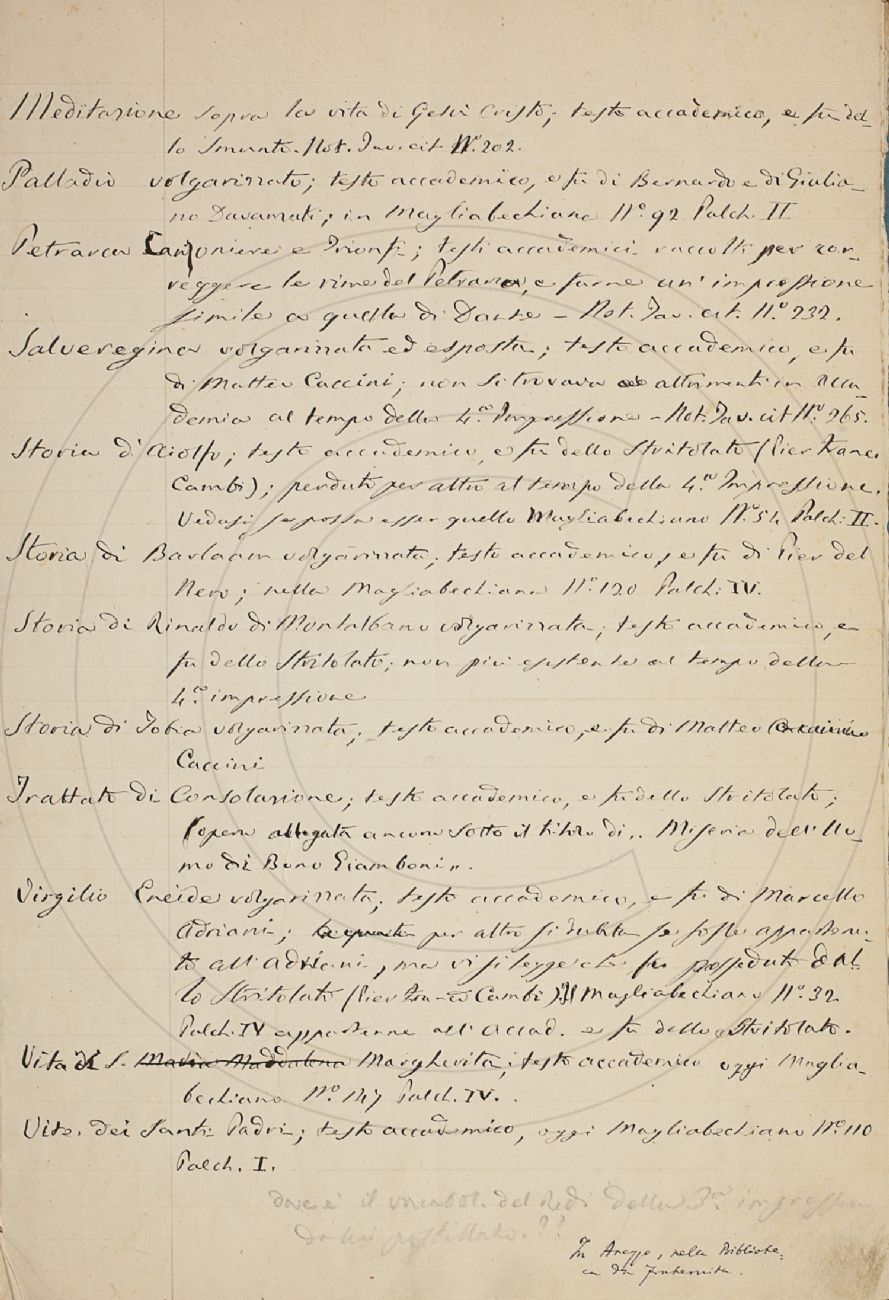 Meditazione sopra la vita di Gesù Cristo; testo accademico, e fu del-
lo Smunto. Not. Tav. cit. N.º 202.
Palladio volgarizzato; testo accademico, e fu di Bernardo e di Giulia-
no Davanzati; in Magliabechiana N.º 92 Palch. II
Petrarca Canzoniere e Trionfi; testi accademici raccolti per cor-
reggere le rime del Petrarca, e farne un' impressione
simile a quella di Dante – Not. Tav. cit. N.º 232.
Salveregina volgarizzata ed esposta; testo accademico, e fu
di Matteo Caccini; non si trovava altrimenti in Acca-
demia al tempo della 4.ª Impressione – Not. Tav. cit N.º 265.
Storia d' Aiolfo; testo accademico, e fu dello Stritolato (Pier Franc.
Cambi); perduto per altro al tempo della 4.ª Impressione.
Vedasi se possa esser quello Magliabechiano N.º 51, Palch. II.
Storia di Barlaam volgarizzata; testo accademico, e fu di Pier del
Nero; nella Magliabechiana N.º 120 Palch. IV.
Storia di Rinaldo di Montalbano volgarizzata; testo accademico, e
fu dello Stritolato; non più esistente al tempo della
4.ª impressione
Storia di Tobia volgarizzata; testo accademico, e fu di Matteo
Caccini
Trattato di Consolazione; testo accademico, e fu dello Stritolato;
(opera allegata ancora sotto il titolo di „ Miseria dell' Uo-
mo di Bono Giamboni „.
Virgilio Eneide volgarizzata; testo accademico, e fu di Marcello
Adriani; per altro si dubita se fosse appartenu-
to all' Adriani, ma vi si legge che fu posseduto dal-
lo Stritolato (Pier Fran.co Cambi) Il Magliabechiano N.º 32
Palch. IV appartenne all' Accad. e fu dello Stritolato.
Vita di S. Maria Maddalena Margherita; testo accademico oggi Maglia-
bechiano N.º 147 Palch. IV.
Vite dei Santi Padri; testo accademico, oggi Magliabechiano N.º 110
Palch. I.
dove è il vocabol. del Redi della 3.ª impressione
da lui postillato. ??
In Arezzo, nella Bibliote-
ca di Fraternita.